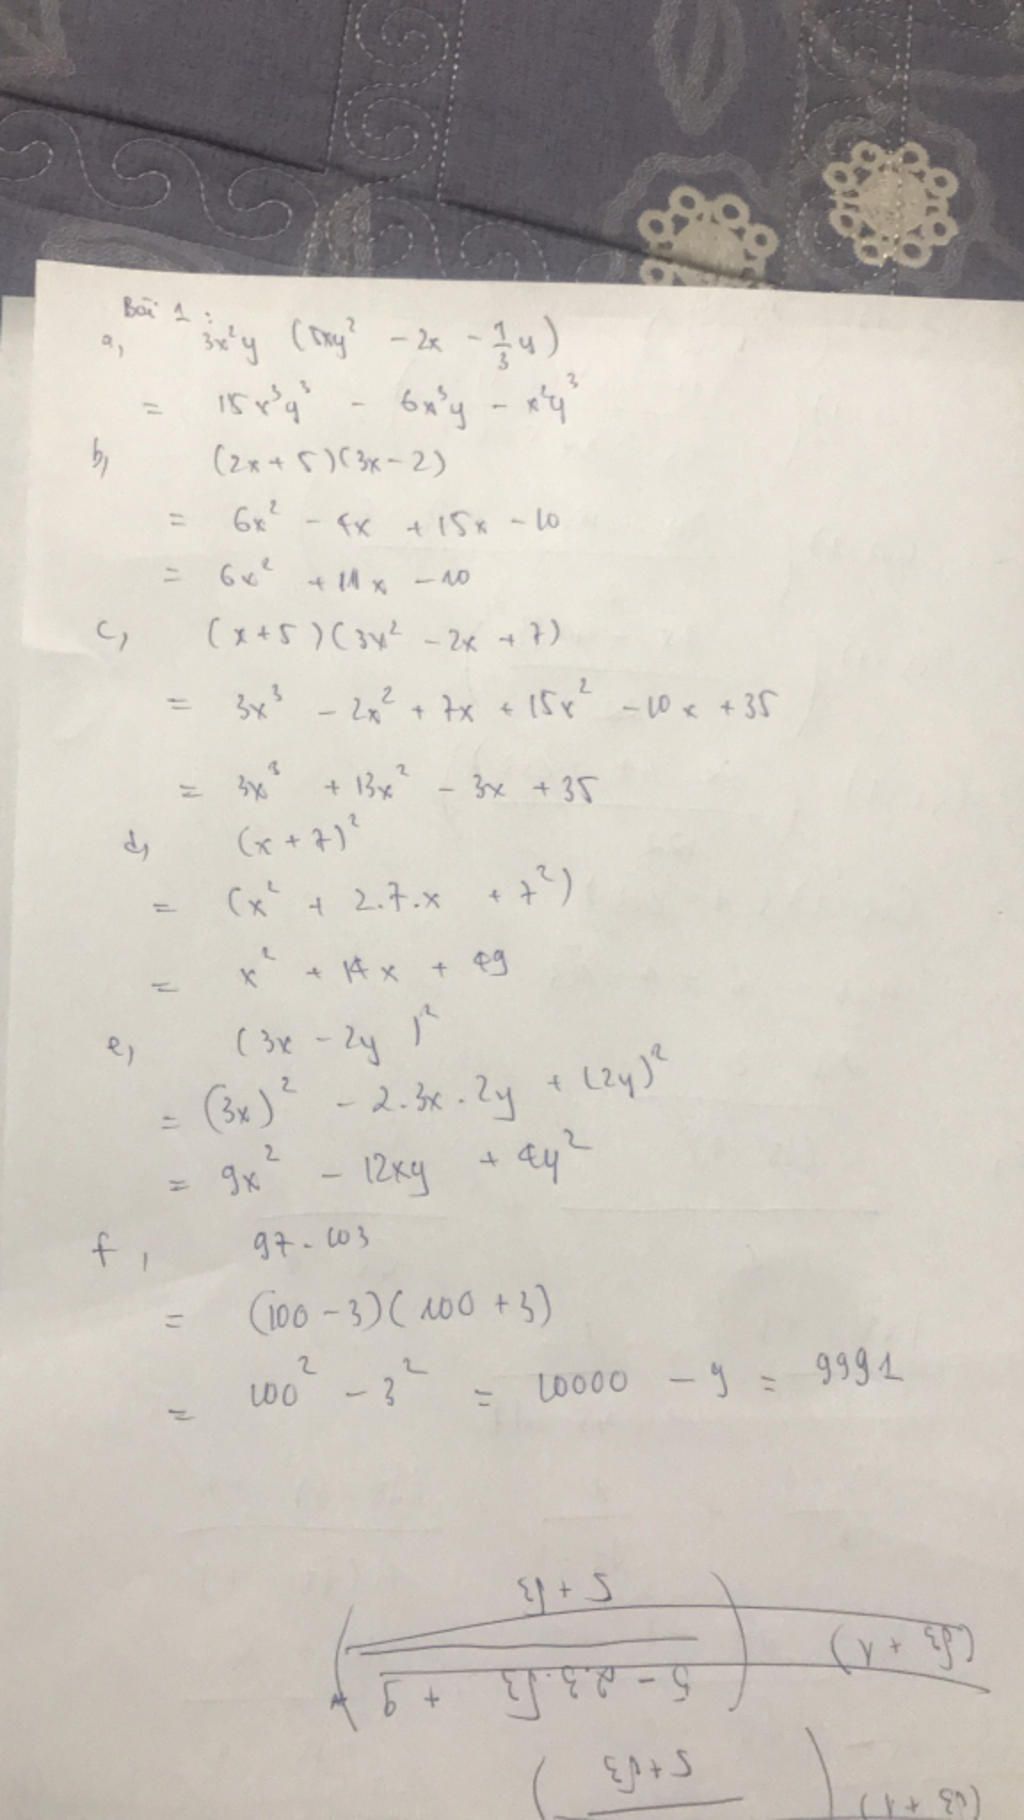 Bài 1:
a, 3x²y (5xy² - 2x - 1/3 y)
= 15x³y³ - 6x³y - x²y³
b, (2x + 5)(3x - 2)
= 6x² - 4x + 15x - 10
= 6x² + 11x - 10
c, (x + 5)(3x² - 2x + 7)
= 3x³ - 2x² + 7x + 15x² - 10x + 35
= 3x³ + 13x² - 3x + 35
d, (x + 7)²
= (x² + 2.7.x + 7²)
= x² + 14x + 49
e, (3x - 2y)²
= (3x)² - 2.3x.2y + (2y)²
= 9x² - 12xy + 4y²
f, 97.103
= (100 - 3)(100 + 3)
= 100² - 3² = 10000 - 9 = 9991
5 + √3
(√3 + 1)
5 + √3
(√3 + 1)